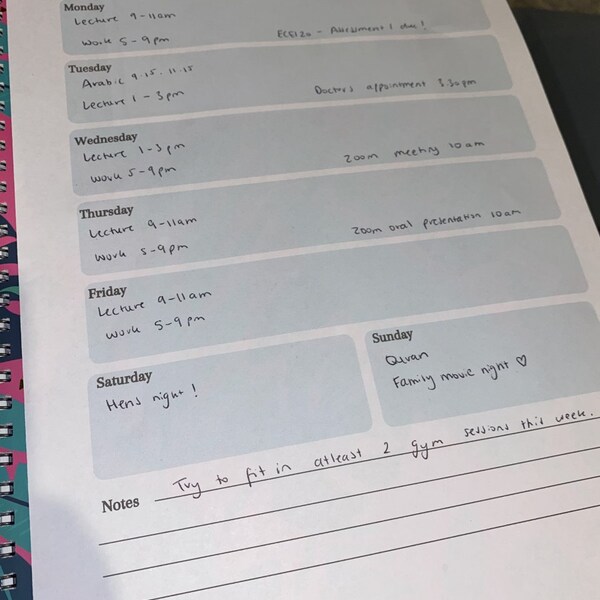 Monday
Lecture 9-11am
Work 5-9pm
Assessment 1 due!
Tuesday
Arabic 9.15-11.15
Lecture 1-3pm
Doctors appointment 3.30pm
Wednesday
Lecture 1-3pm
Work 5-9pm
Zoom meeting 10am
Thursday
Lecture 9-11am
Work 5-9pm
Zoom oral presentation 10am
Friday
Lecture 9-11am
Work 5-9pm
Saturday
Hens night!
Sunday
Quran
Family movie night ♡
Notes
Try to fit in atleast 2 gym sessions this week.